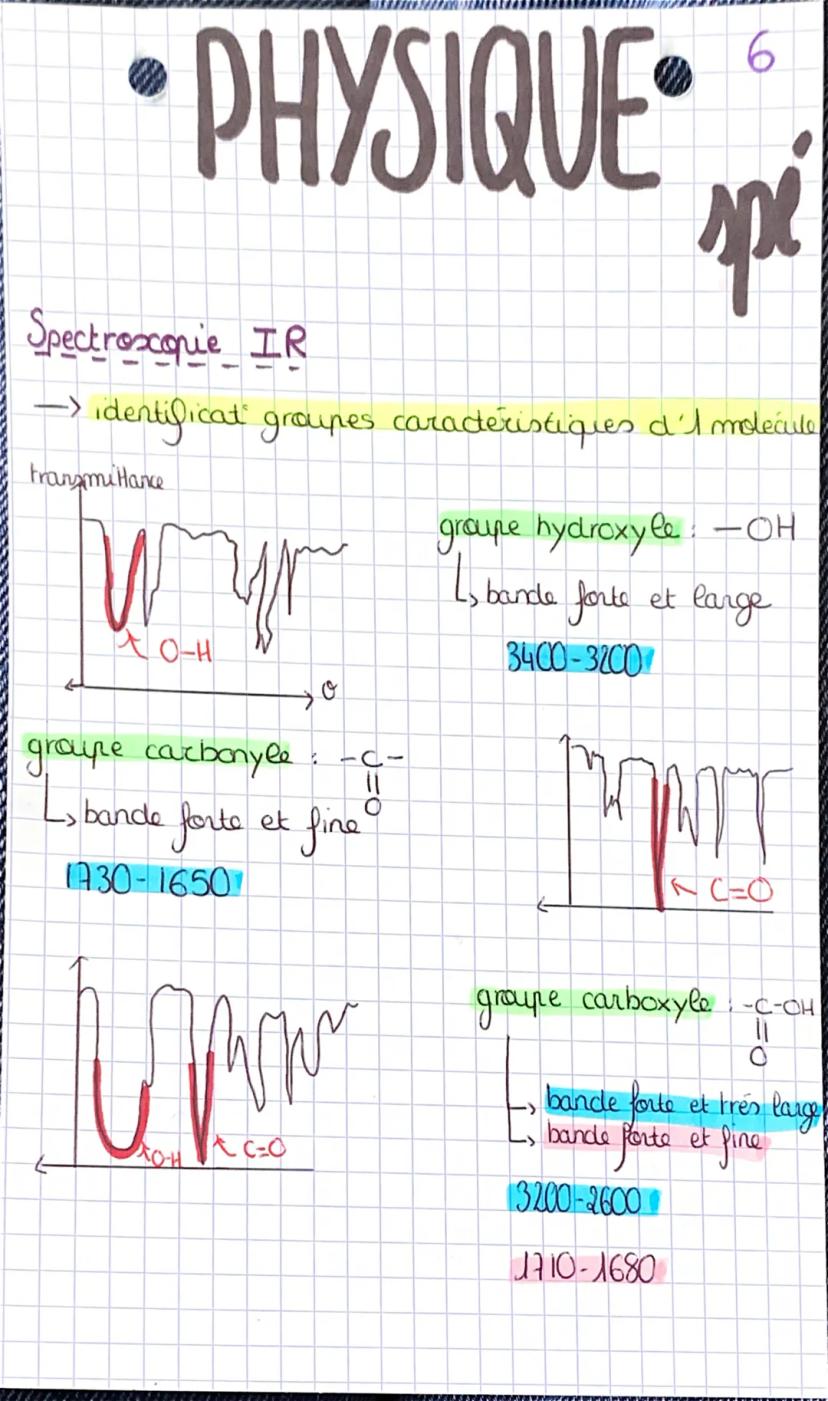 PHYSIQUE
6
spé
Spectroscopie IR
→ identificat° groupes caractéristiques d'1 molécule
transmittance
groupe hydroxyle : -OH
↳ bande forte et large
O-H
3400-3200
σ
groupe carbonyle : -C-
||
O
↳ bande forte et fine
1730-1650
C=O
groupe carboxyle : -C-OH
||
O
↳ bande forte et très large
↳ bande forte et fine
O-H
C=O
3200-2600
1710-1680